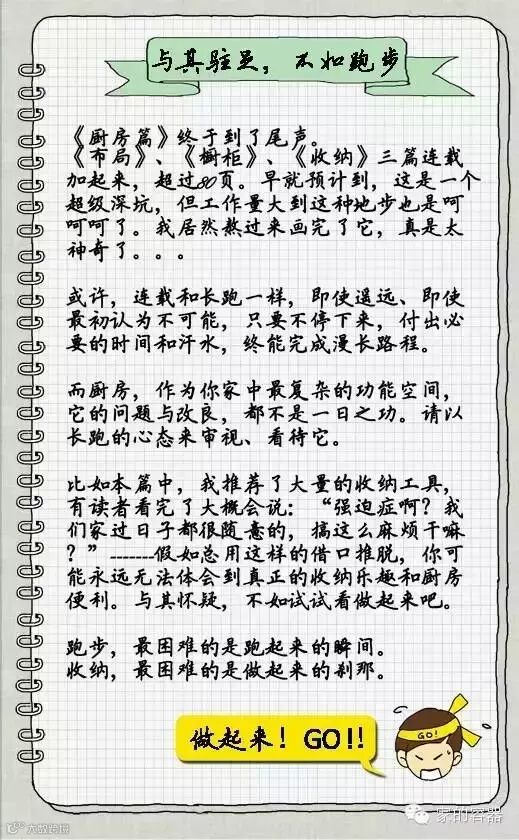 与其驻足，不如跑步
《厨房篇》终于到了尾声。
《布局》、《橱柜》、《收纳》三篇连载
加起来，超过80页。早就预计到，这是一个
超级深坑，但工作量大到这种地步也是呵
呵呵了。我居然熬过来画完了它，真是太
神奇了。。。
或许，连载和长跑一样，即使遥远、即使
最初认为不可能，只要不停下来，付出必
要的时间和汗水，终能完成漫长路程。
而厨房，作为你家中最复杂的功能空间，
它的问题与改良，都不是一日之功。请以
长跑的心态来审视、看待它。
比如本篇中，我推荐了大量的收纳工具，
有读者看完了大概会说：“强迫症啊？我
们家过日子都很随意的，搞这么麻烦干嘛
？”-------假如总用这样的借口推脱，你可
能永远无法体会到真正的收纳乐趣和厨房
便利。与其怀疑，不如试试看做起来吧。
跑步，最困难的是跑起来的瞬间。
收纳，最困难的是做起来的刹那。
做起来！GO!!
GO!
家的容器
大数跨境